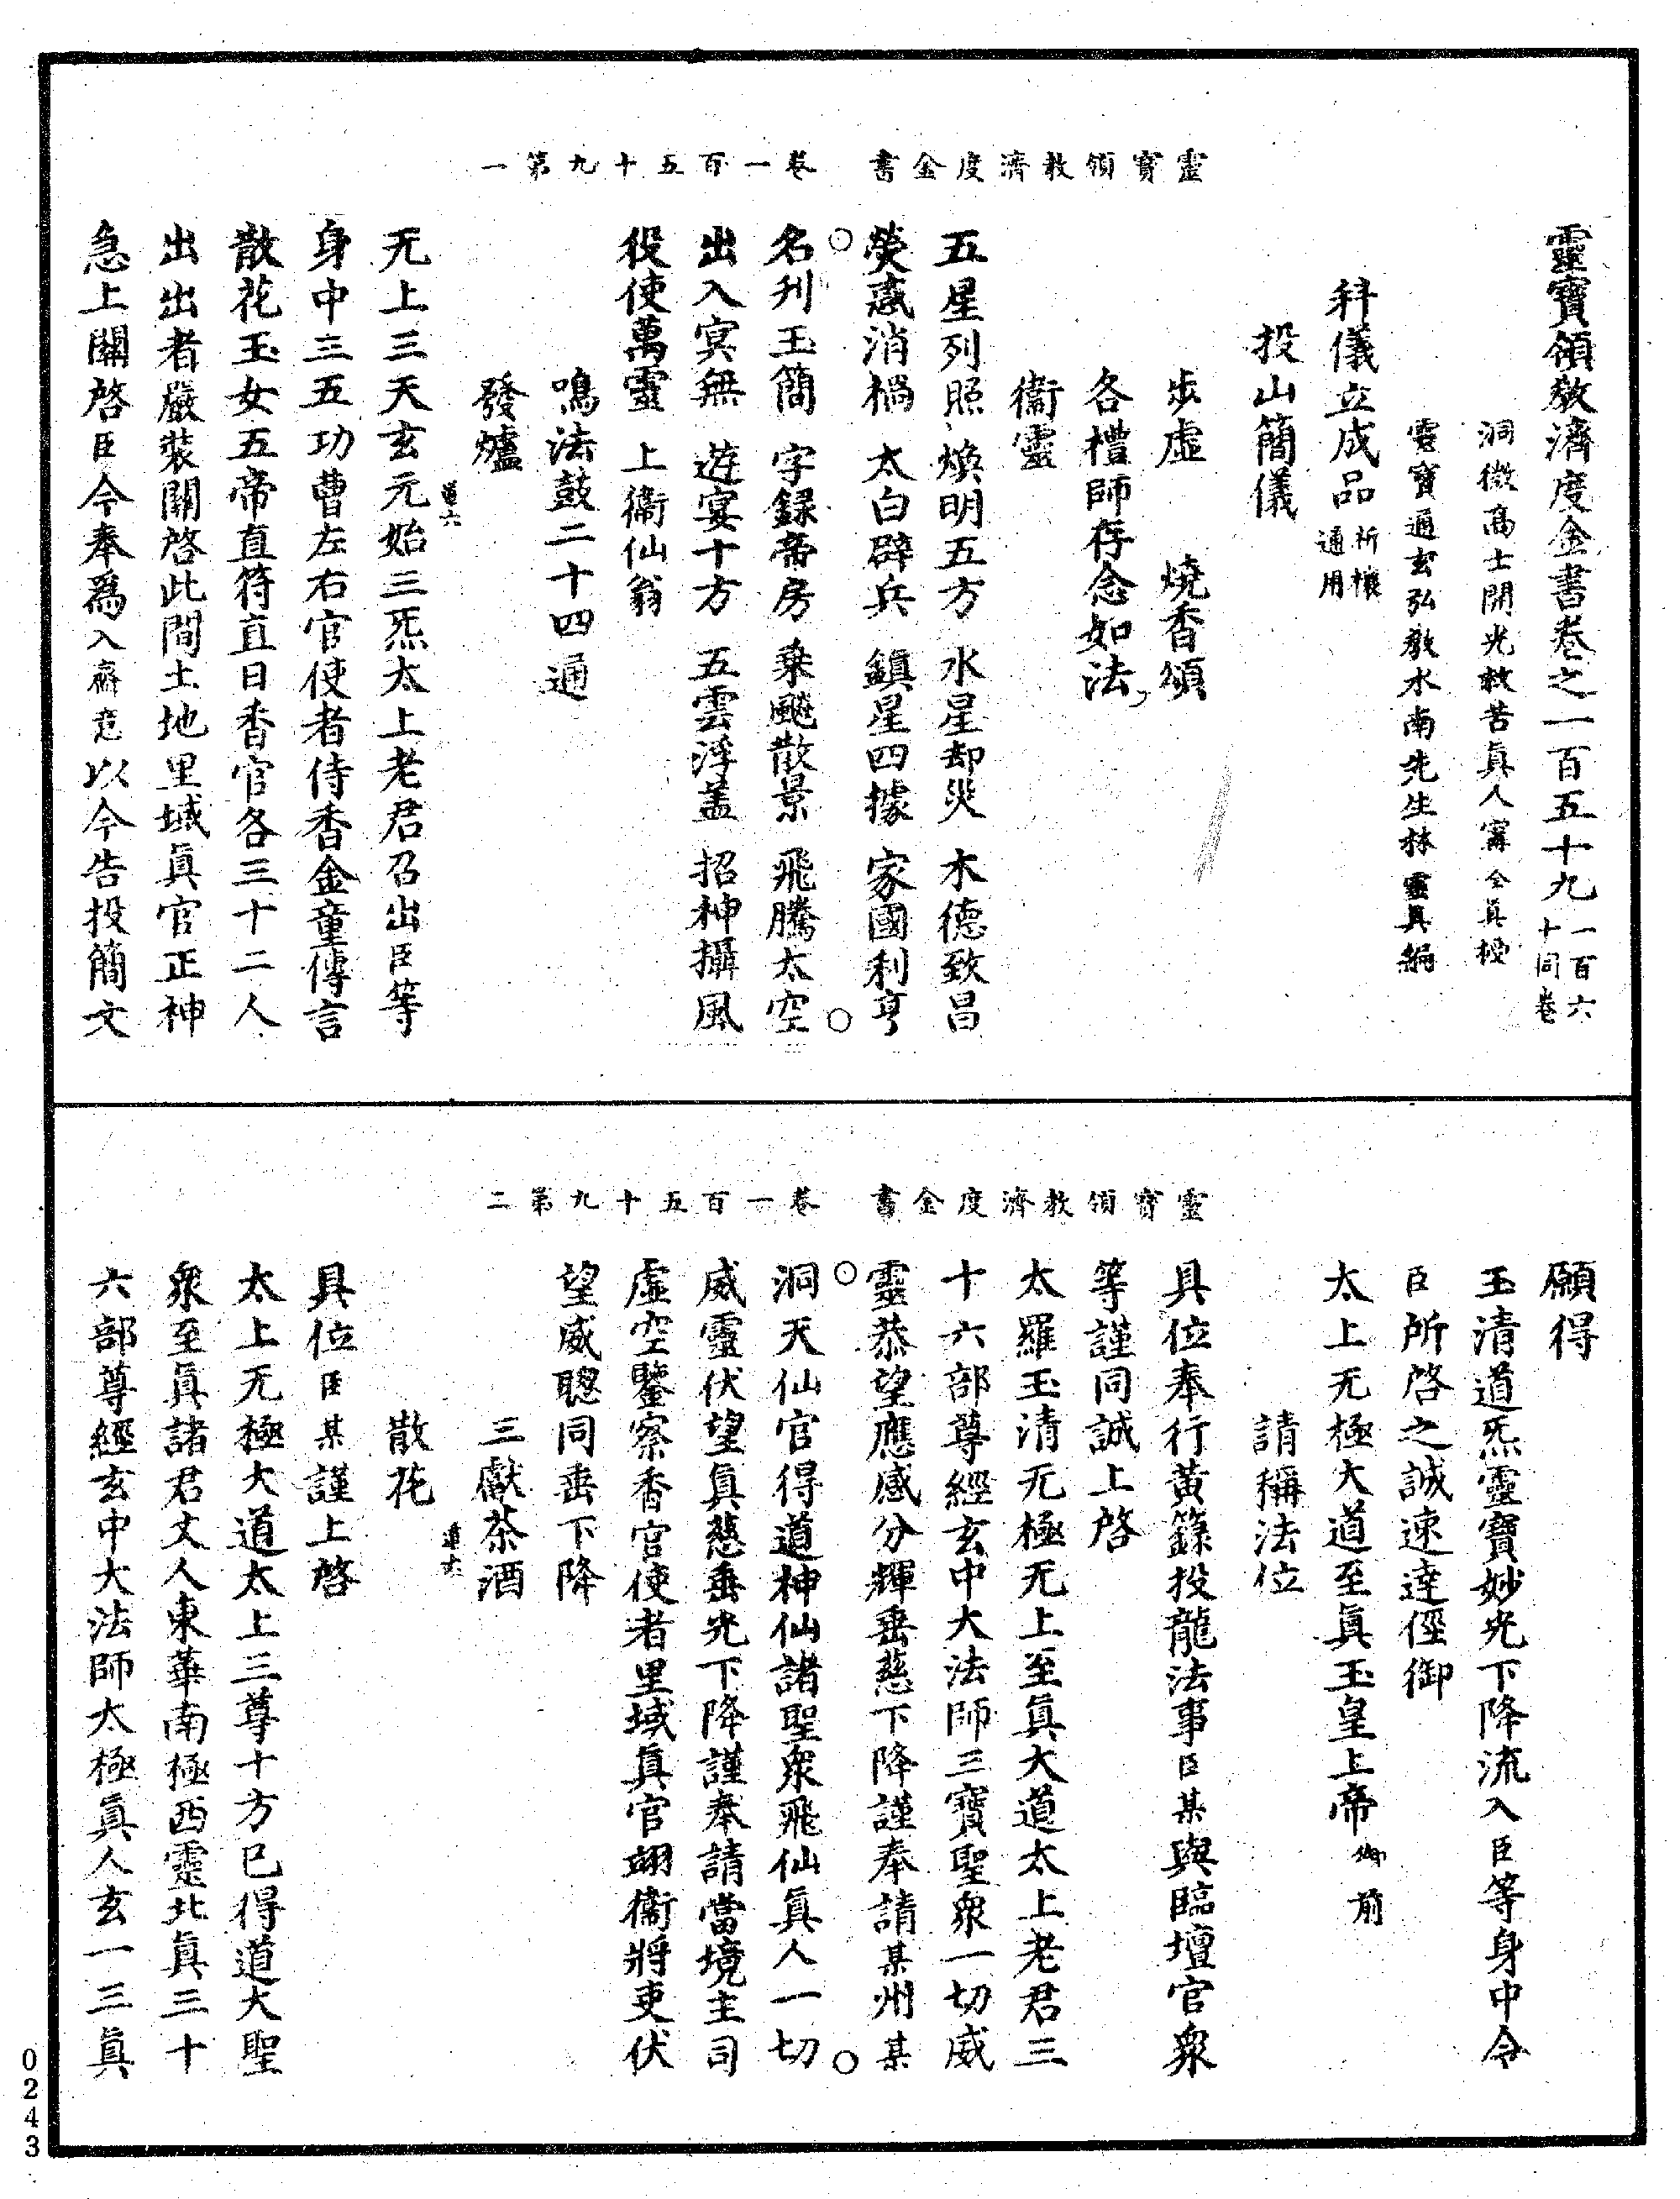 靈寶領教濟度金書　卷一百五十九第一
靈寶領教濟度金書卷之一百五十九 一百六十同卷
洞微高士開光救苦眞人甯全眞授
靈寶通玄弘教水南先生林靈眞編
科儀立成品 祈禳通用
投山簡儀
步虛　燒香頌
各禮師存念如法
衞靈
五星列照 煥明五方 水星却災 木德致昌
熒惑消禍 太白辟兵 鎮星四據 家國利亨
名刋玉簡 字録帝房 乗飈散景 飛騰太空
出入冥無 遊宴十方 五雲浮蓋 招神攝風
役使萬靈 上衞仙翁
鳴法鼓二十四通
發爐
无上三天玄元始三炁太上老君召出臣等
身中三五功曹左右官使者侍香金童傳言
散花玉女五帝直符直日香官各三十二人
出出者嚴裝關啓此間土地里域眞官正神
急上關啓臣今奉爲入齋意以今告投簡文
靈寶領教濟度金書　卷一百五十九第二
願得
玉清道炁靈寶妙光下降流入臣等身中令
臣所啓之誠速達徑御
太上无極大道至眞玉皇上帝御前
請稱法位
具位奉行黃籙投龍法事臣某與臨壇官衆
等謹同誠上啓
太羅玉清无極无上至眞大道太上老君三
十六部尊經玄中大法師三寶聖衆一切威
靈恭望應感分輝垂慈下降謹奉請某州某
洞天仙官得道神仙諸聖衆飛仙眞人一切
威靈伏望眞慈垂光下降謹奉請當境主司
虛空鑒察香官使者里域眞官翊衞將吏伏
望威聰同垂下降
三獻茶酒
散花
具位臣某謹上啓
太上无極大道太上三尊十方已得道大聖
衆至眞諸君丈人東華南極西靈北眞三十
六部尊經玄中大法師太極眞人玄一三眞
0243